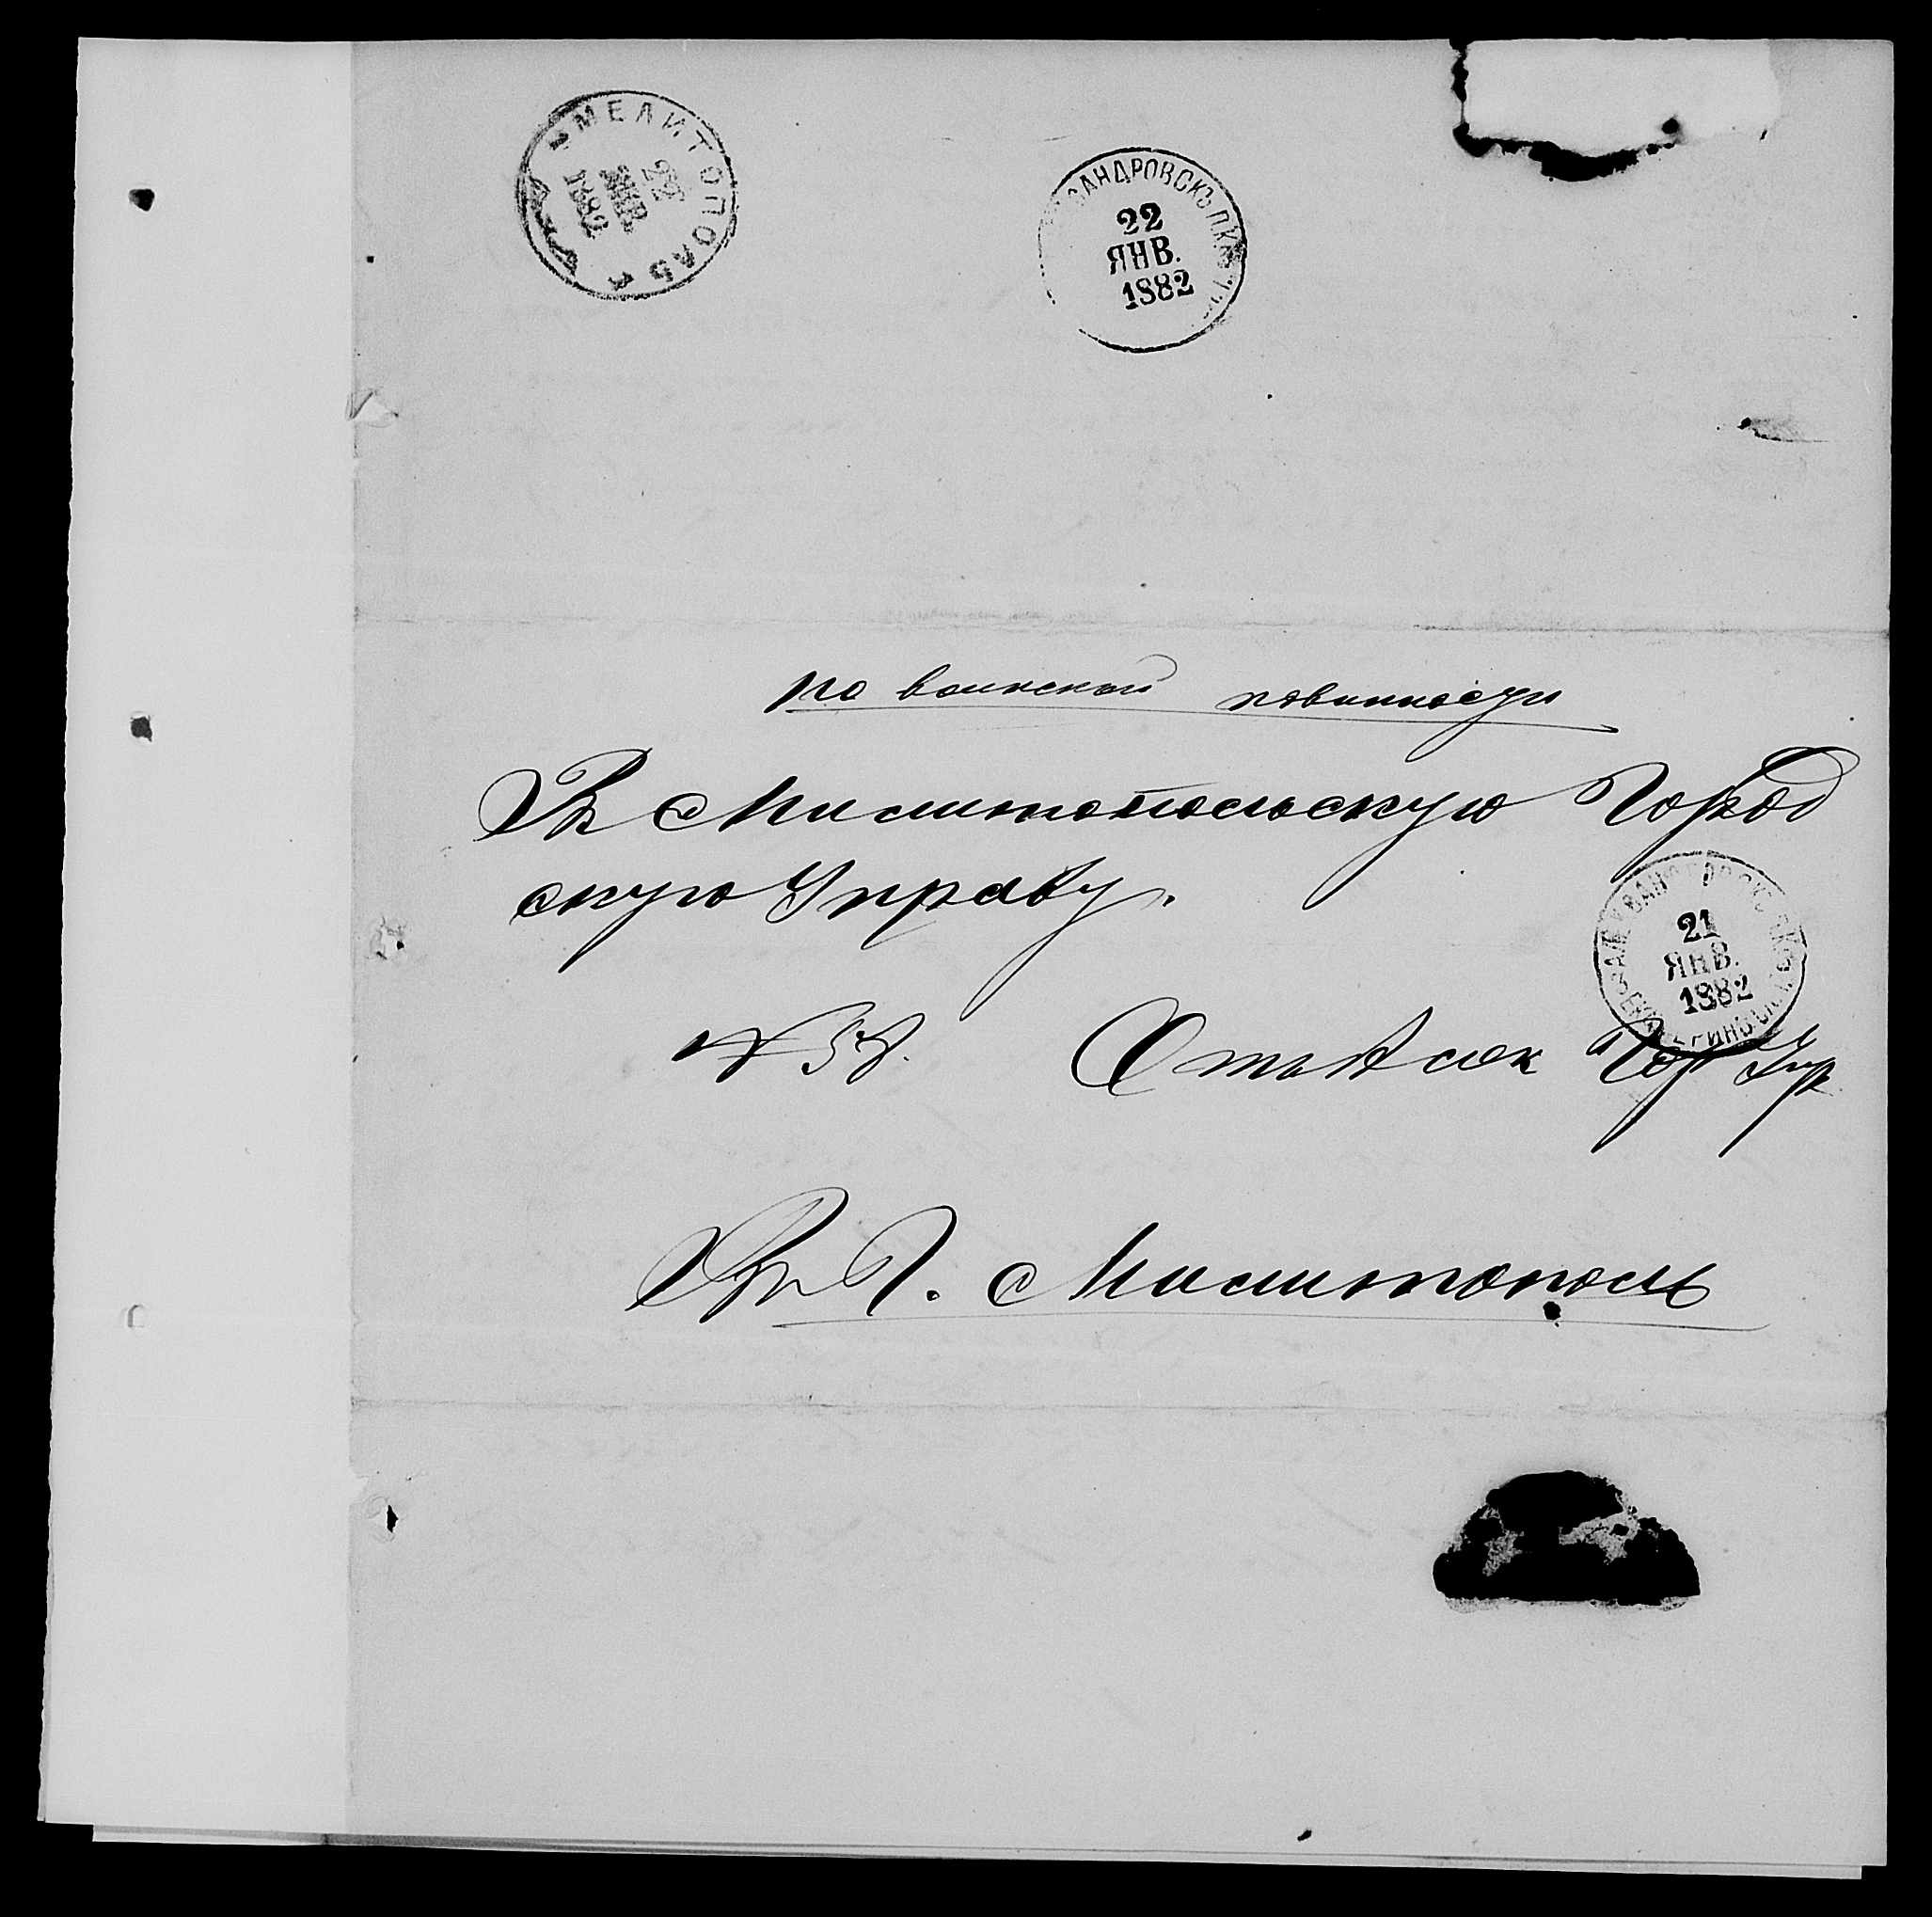 МЕЛИТОПОЛЬ
22
ЯНВ.
1882
САНДРОВСКЪ П.К.
22
ЯНВ.
1882
по воинской повинности
Въ Мелитопольскую Город
скую Управу.
21
ЯНВ.
1882
№ 58. Отъ Алек Гор Упр
Въ Г. Мелитополь